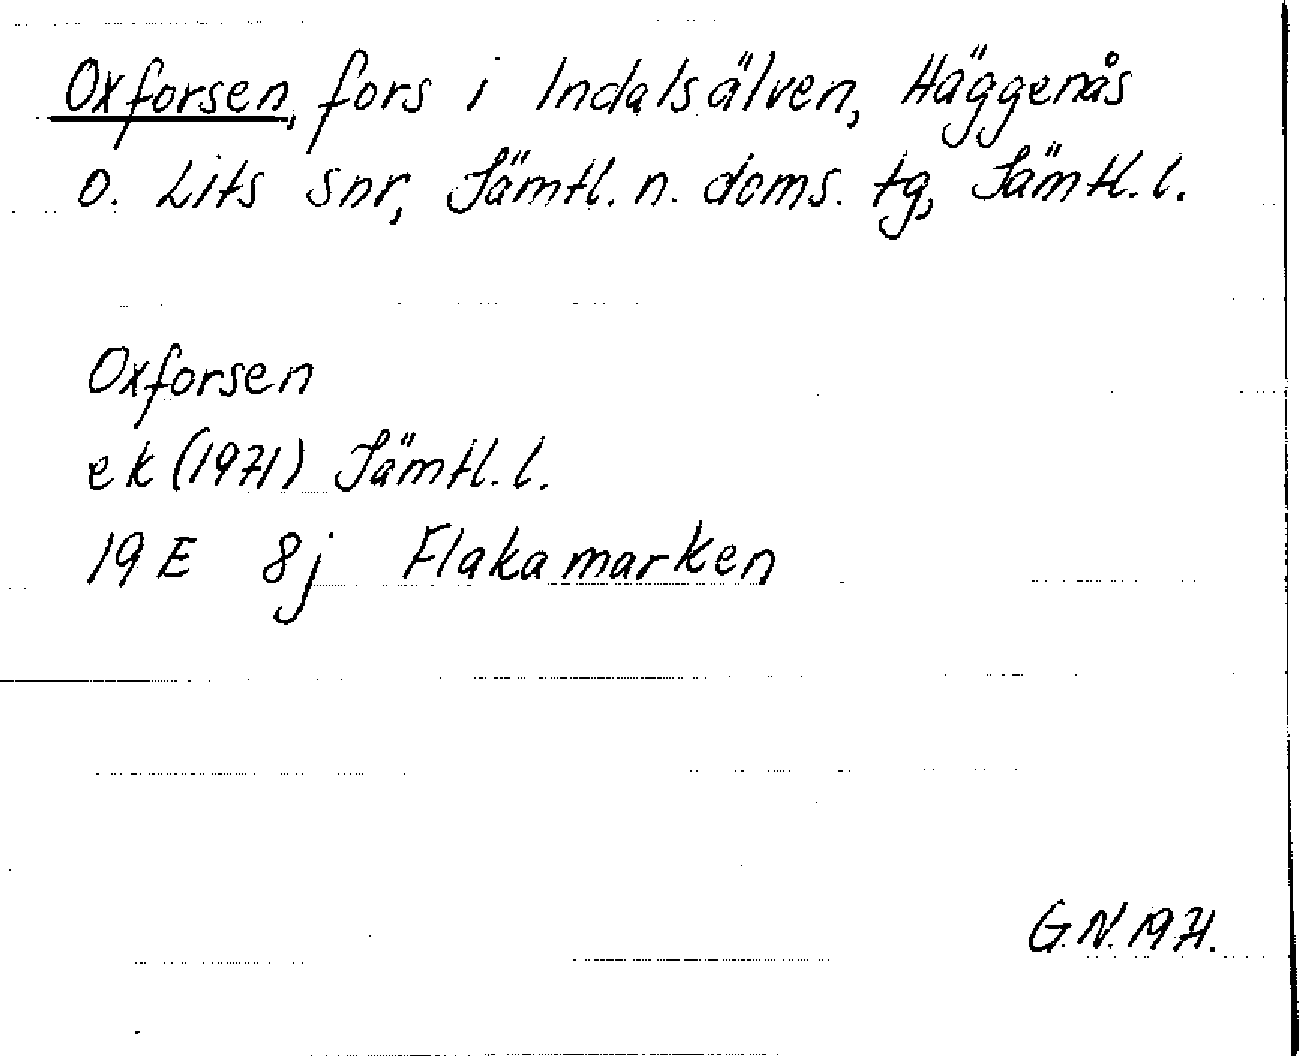 Oxforsen, fors i Indalsälven, Häggenås
o. Lits snr, Jämtl. n. doms. tg, Jämtl. l.
Oxforsen
ek (1971) Jämtl. l.
19 E 8j Flakamarken
G.N. 1971.